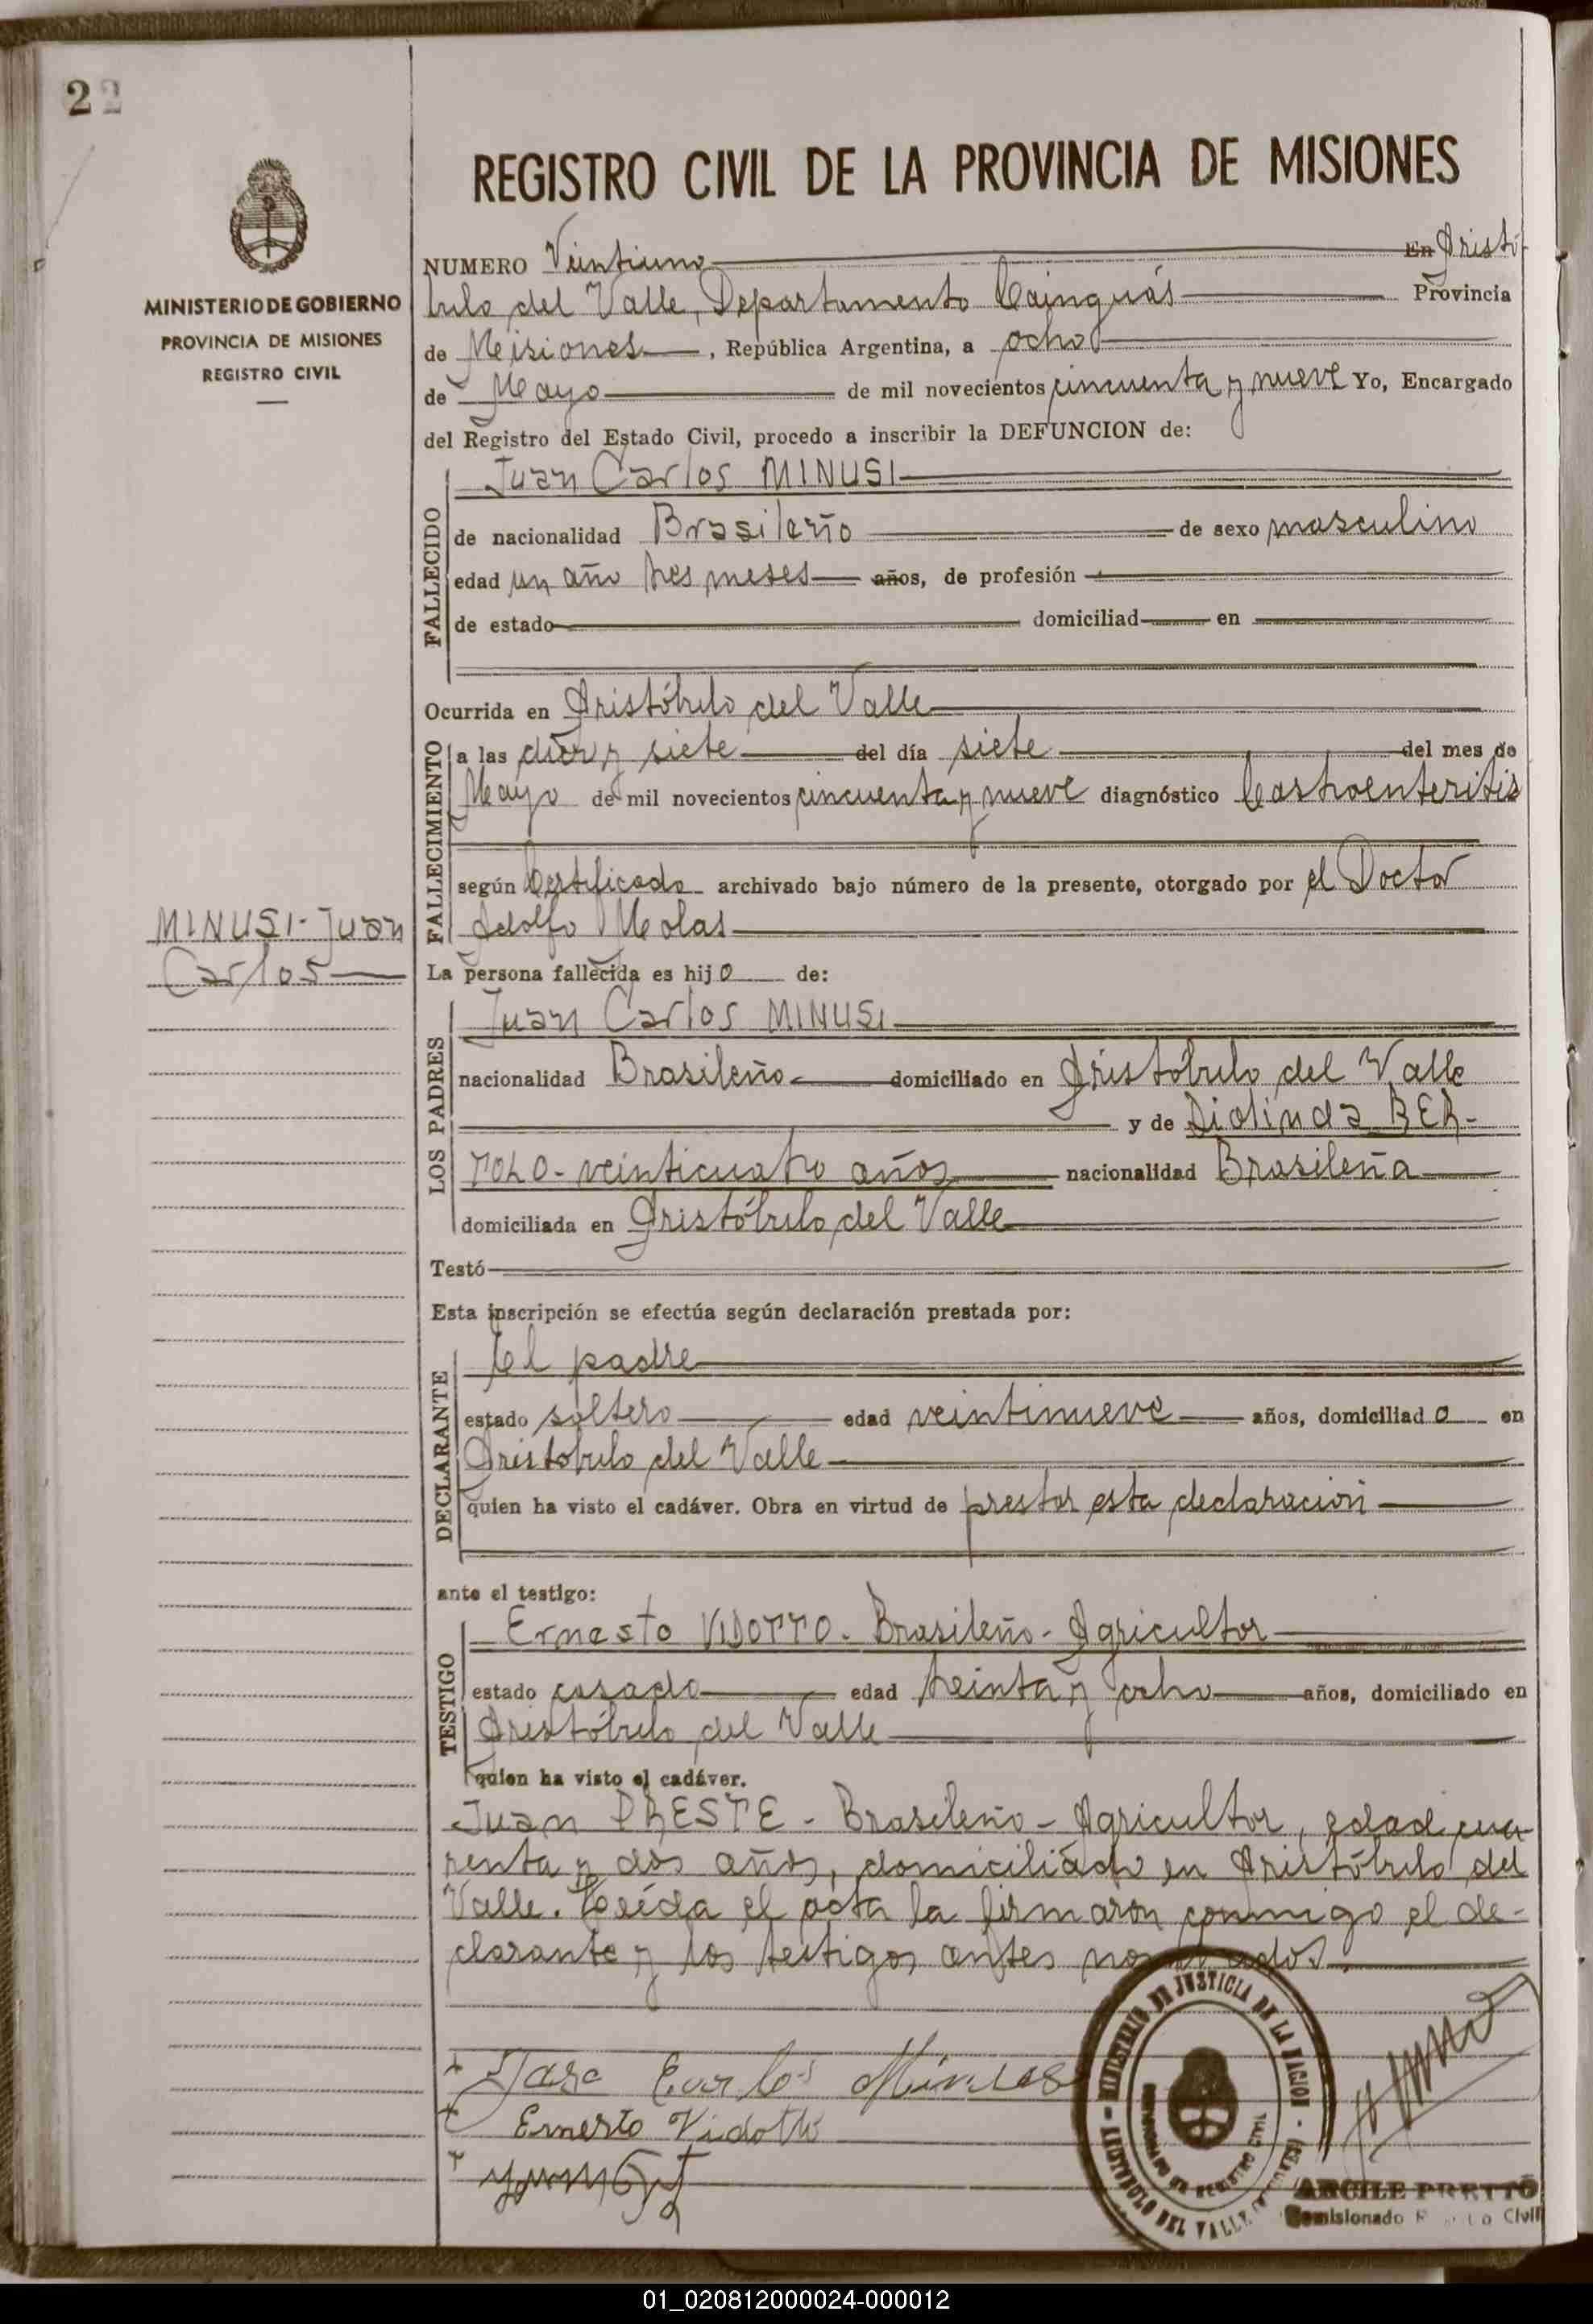 22
MINISTERIO DE GOBIERNO
PROVINCIA DE MISIONES
REGISTRO CIVIL
MINUSI - Juan
Carlos
REGISTRO CIVIL DE LA PROVINCIA DE MISIONES
NUMERO Veintiuno En Aristó
bulo del Valle, Departamento Cainguás Provincia
de Misiones, República Argentina, a ocho
de Mayo de mil novecientos cincuenta y nueve Yo, Encargado
del Registro del Estado Civil, procedo a inscribir la DEFUNCION de:
FALLECIDO
Juan Carlos MINUSI
de nacionalidad Brasileño de sexo masculino
edad un año tres meses años, de profesión
de estado domiciliad en
Ocurrida en Aristóbulo del Valle
FALLECIMIENTO
a las diez y siete del día siete del mes de
Mayo de mil novecientos cincuenta y nueve diagnóstico Gastroenteritis
según Certificado archivado bajo número de la presente, otorgado por el Doctor
Adolfo Molas
La persona fallecida es hijo de:
LOS PADRES
Juan Carlos MINUSI
nacionalidad Brasileño domiciliado en Aristóbulo del Valle
y de Diolinda BER-
TOLO - veinticuatro años nacionalidad Brasileña
domiciliada en Aristóbulo del Valle
Testó
Esta inscripción se efectúa según declaración prestada por:
DECLARANTE
El padre
estado soltero edad veintinueve años, domiciliado en
Aristobulo del Valle
quien ha visto el cadáver. Obra en virtud de prestar esta declaración
ante el testigo:
TESTIGO
Ernesto VIDOTTO - Brasileño - Agricultor
estado casado edad treinta y ocho años, domiciliado en
Aristóbulo del Valle
quien ha visto el cadáver.
Juan PRESTE - Brasileño - Agricultor, edad cua
renta y dos años, domiciliado en Aristóbulo del
Valle. Leída el acta la firmaron conmigo el de-
clarante y los testigos antes nombrados.
Carlos
Ernesto Vidotto
MINISTERIO DE JUSTICIA DE LA NACION - ARISTOBULO DEL VALLE (MISIONES)
REGISTRO CIVIL
ARCILE PRETTO
Comisionado Registro Civil
01_020812000024-000012